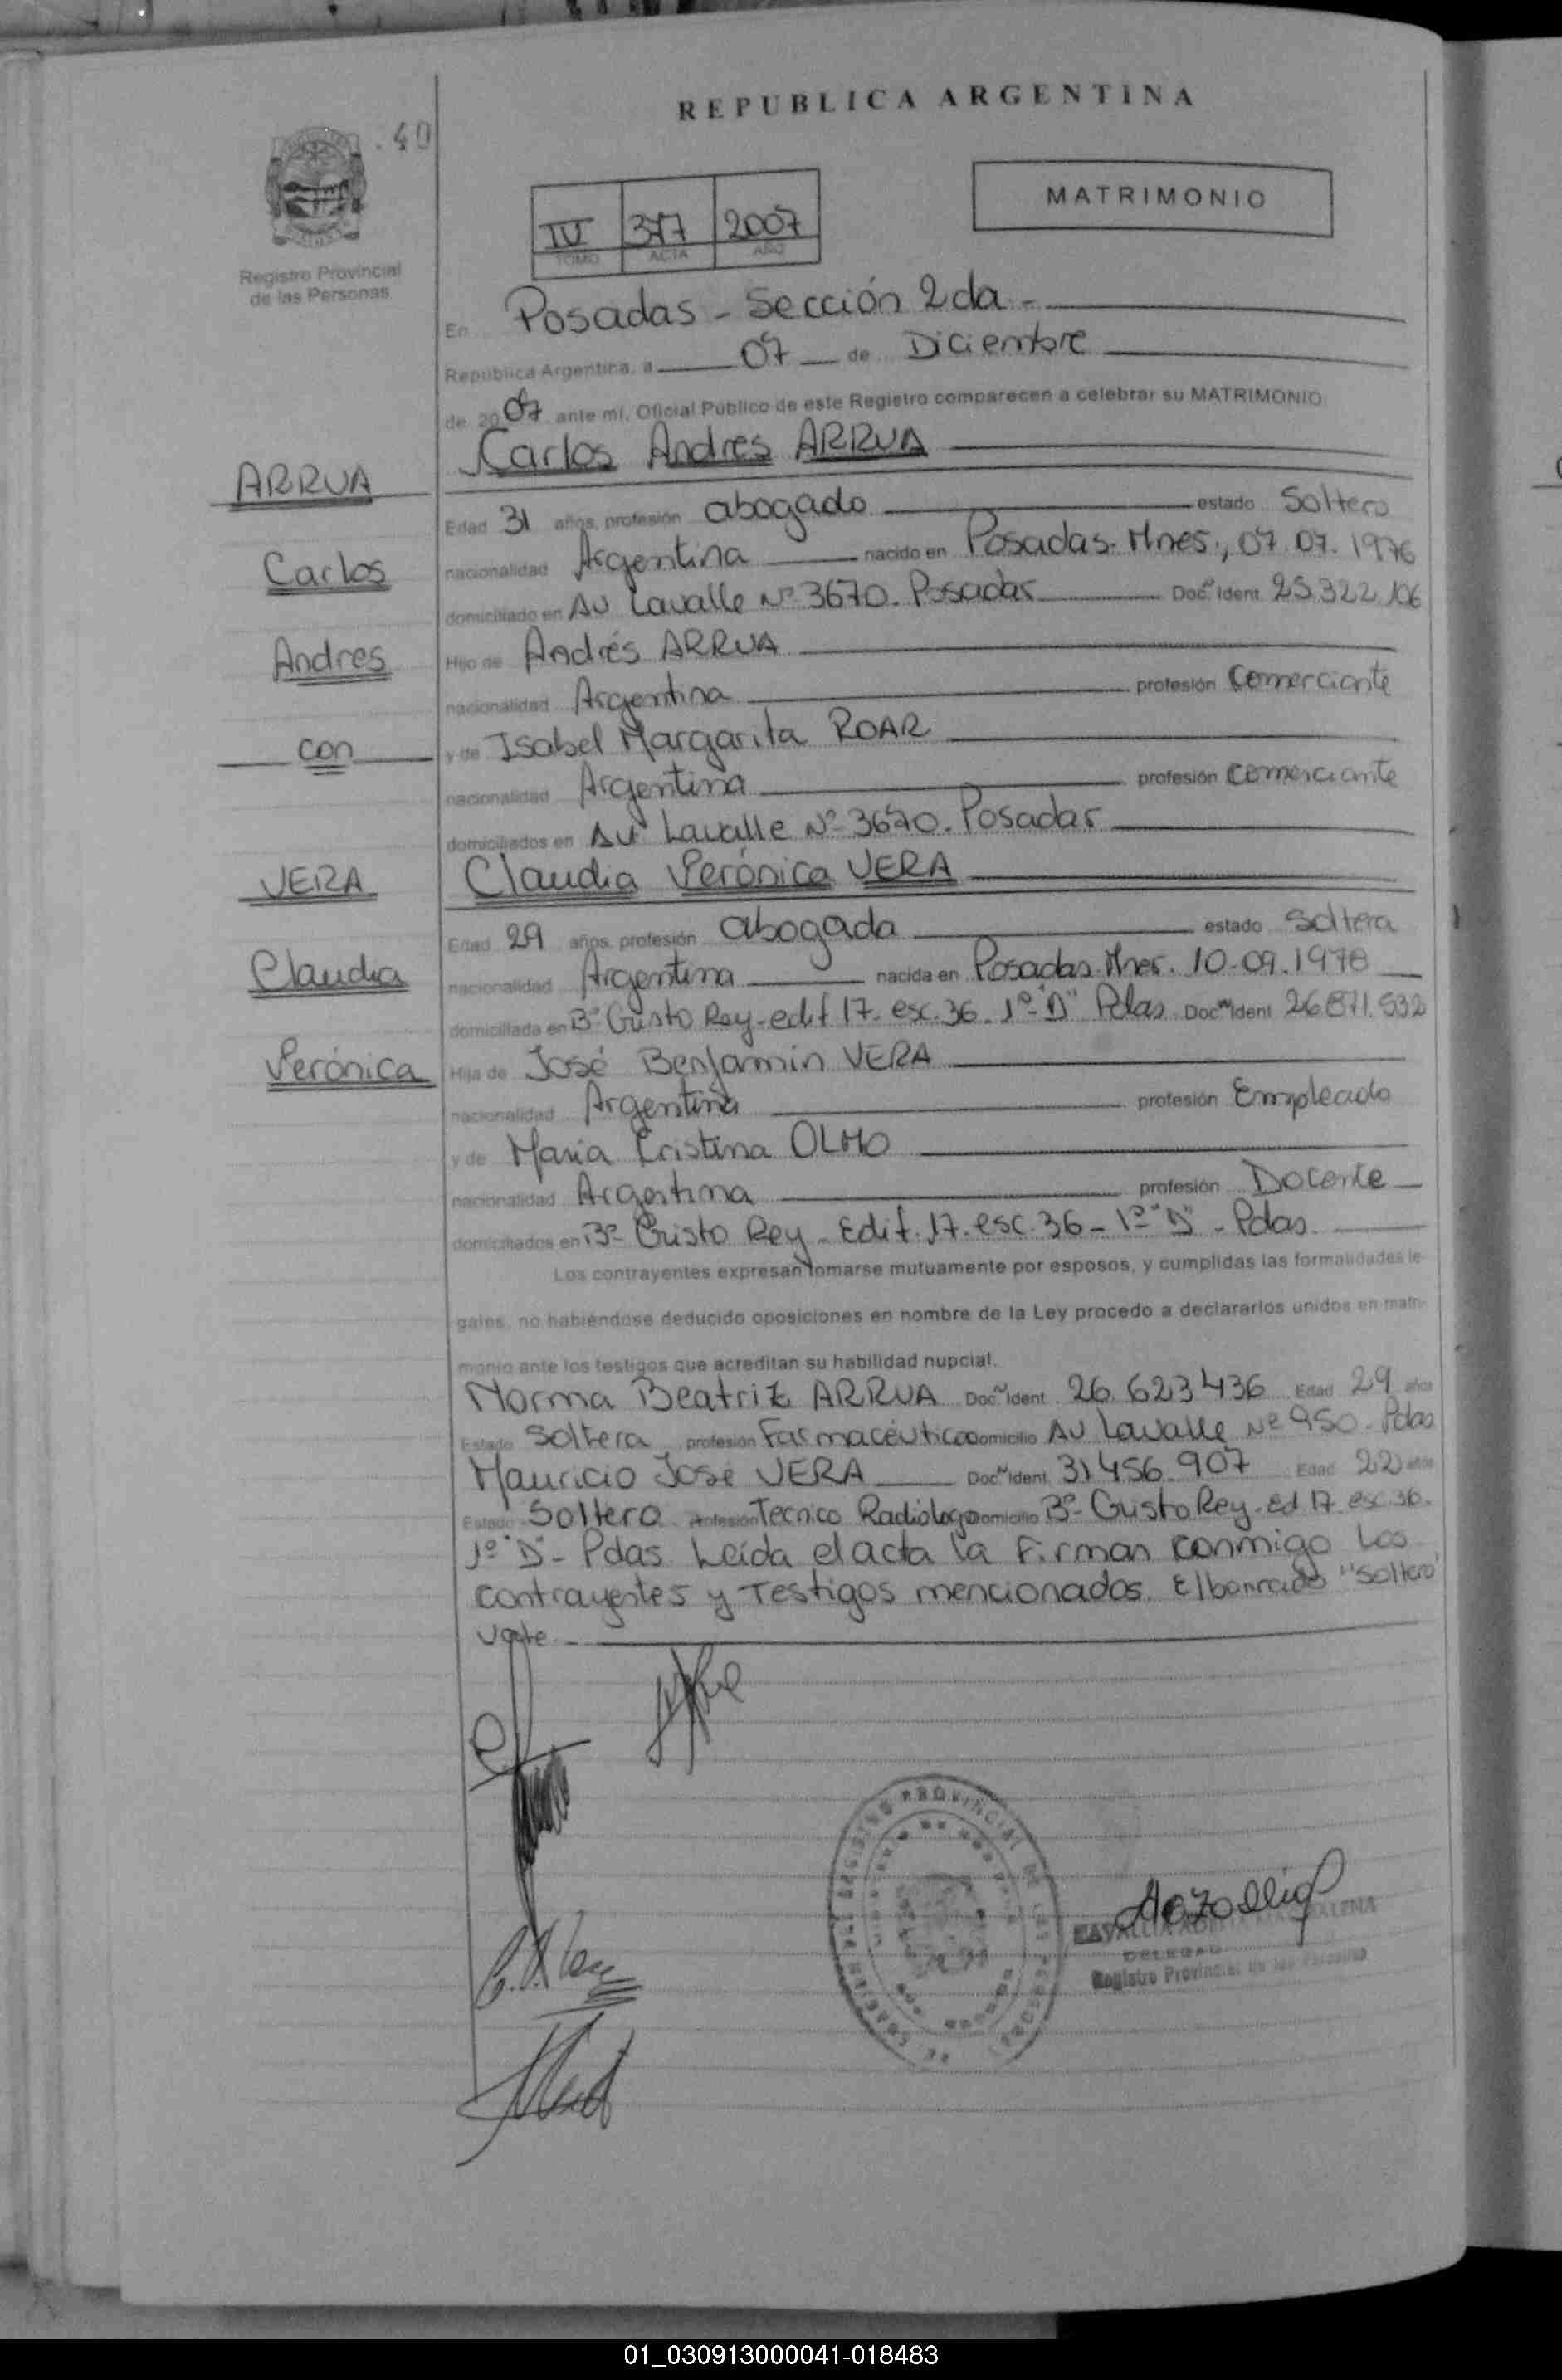 REPUBLICA ARGENTINA
.40
MATRIMONIO
IV 377 2007
TOMO ACTA AÑO
Registro Provincial
de las Personas
En Posadas - Sección 2da -
República Argentina, a 07 de Diciembre
de 2007 ante mí, Oficial Público de este Registro comparecen a celebrar su MATRIMONIO:
Carlos Andres ARRUA
ARRUA
Edad 31 años, profesión abogado estado Soltero
Carlos
nacionalidad Argentina nacido en Posadas. Mnes., 07.07.1976
domiciliado en Av Lavalle Nº 3670. Posadas Doc. Nº Ident. 25.322.106
Andres
Hijo de Andrés ARRUA
nacionalidad Argentina profesión Comerciante
con
y de Isabel Margarita ROAR
nacionalidad Argentina profesión Comerciante
domiciliados en Av Lavalle Nº 3670. Posadas
VERA
Claudia Verónica VERA
Edad 29 años, profesión abogada estado Soltera
Claudia
nacionalidad Argentina nacida en Posadas. Mnes. 10.09.1978
domiciliada en Bº Cristo Rey - edif 17. esc. 36. 1º "D" Pdas Doc. Nº Ident. 26871.532
Verónica
Hija de José Benjamín VERA
nacionalidad Argentina profesión Empleado
y de María Cristina OLMO
nacionalidad Argentina profesión Docente
domiciliados en Bº Cristo Rey - Edif. 17. esc. 36 - 1º "D" - Pdas.
Los contrayentes expresan tomarse mutuamente por esposos, y cumplidas las formalidades le-
gales, no habiéndose deducido oposiciones en nombre de la Ley procedo a declararlos unidos en matri-
monio ante los testigos que acreditan su habilidad nupcial.
Norma Beatriz ARRUA Doc. Nº Ident. 26.623436 Edad 29 años
Estado Soltera profesión Farmacéutica domicilio Av Lavalle Nº 950. Pdas
Mauricio José VERA Doc. Nº Ident. 31456.907 Edad 22 años
Estado Soltero profesión Tecnico Radiólogo domicilio Bº Cristo Rey. Ed 17. esc. 36.
1º "D" - Pdas. Leída el acta la firman conmigo los
contrayentes y Testigos mencionados. El borrado "Soltero"
Vale.-
REGISTRO PROVINCIAL DE LAS PERSONAS
DELEGADA
Registro Provincial de las Personas
01_030913000041-018483